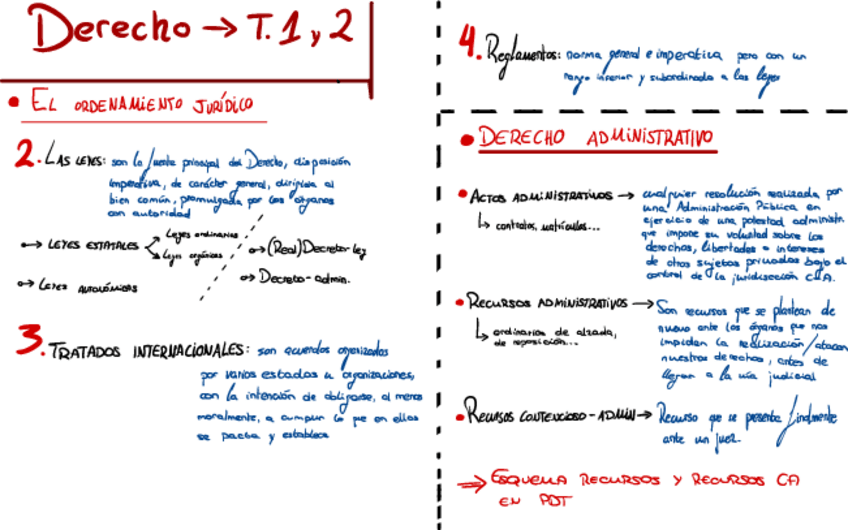 Derecho → T. 1 y 2
• EL ORDENAMIENTO JURÍDICO
2. LAS LEYES: son la fuente principal del Derecho, disposición
imperativa, de carácter general, dirigida al
bien común, promulgada por los órganos
con autoridad
→ LEYES ESTATALES
Leyes ordinarias
Leyes orgánicas
→ LEYES AUTONÓMICAS
→ (Real) Decreto-ley
→ Decreto-admin.
3. TRATADOS INTERNACIONALES: son acuerdos organizados
por varios estados u organizaciones,
con la intención de obligarse, al menos
moralmente, a cumplir lo que en ellos
se pacta y establece
4. Reglamentos: norma general e imperativa pero con un
rango inferior y subordinada a las leyes
• DERECHO ADMINISTRATIVO
• ACTOS ADMINISTRATIVOS → cualquier resolución realizada por
una Administración Pública en
ejercicio de una potestad administr.
que impone su voluntad sobre los
derechos, libertades o intereses
de otros sujetos privados bajo el
control de la
↳ contratos, matrículas...
• RECURSOS ADMINISTRATIVOS → Son recursos que se plantean de
nuevo ante los órganos que nos
impidan la realización/atacan
nuestros derechos, antes de
llegar a la vía judicial
↳ ordinarios de alzada,
de reposición...
• RECURSOS CONTENCIOSO-ADMIN → Recurso que se presenta finalmente
ante un juez.
→ ESQUEMA RECURSOS Y RECURSOS CA
EN PDT